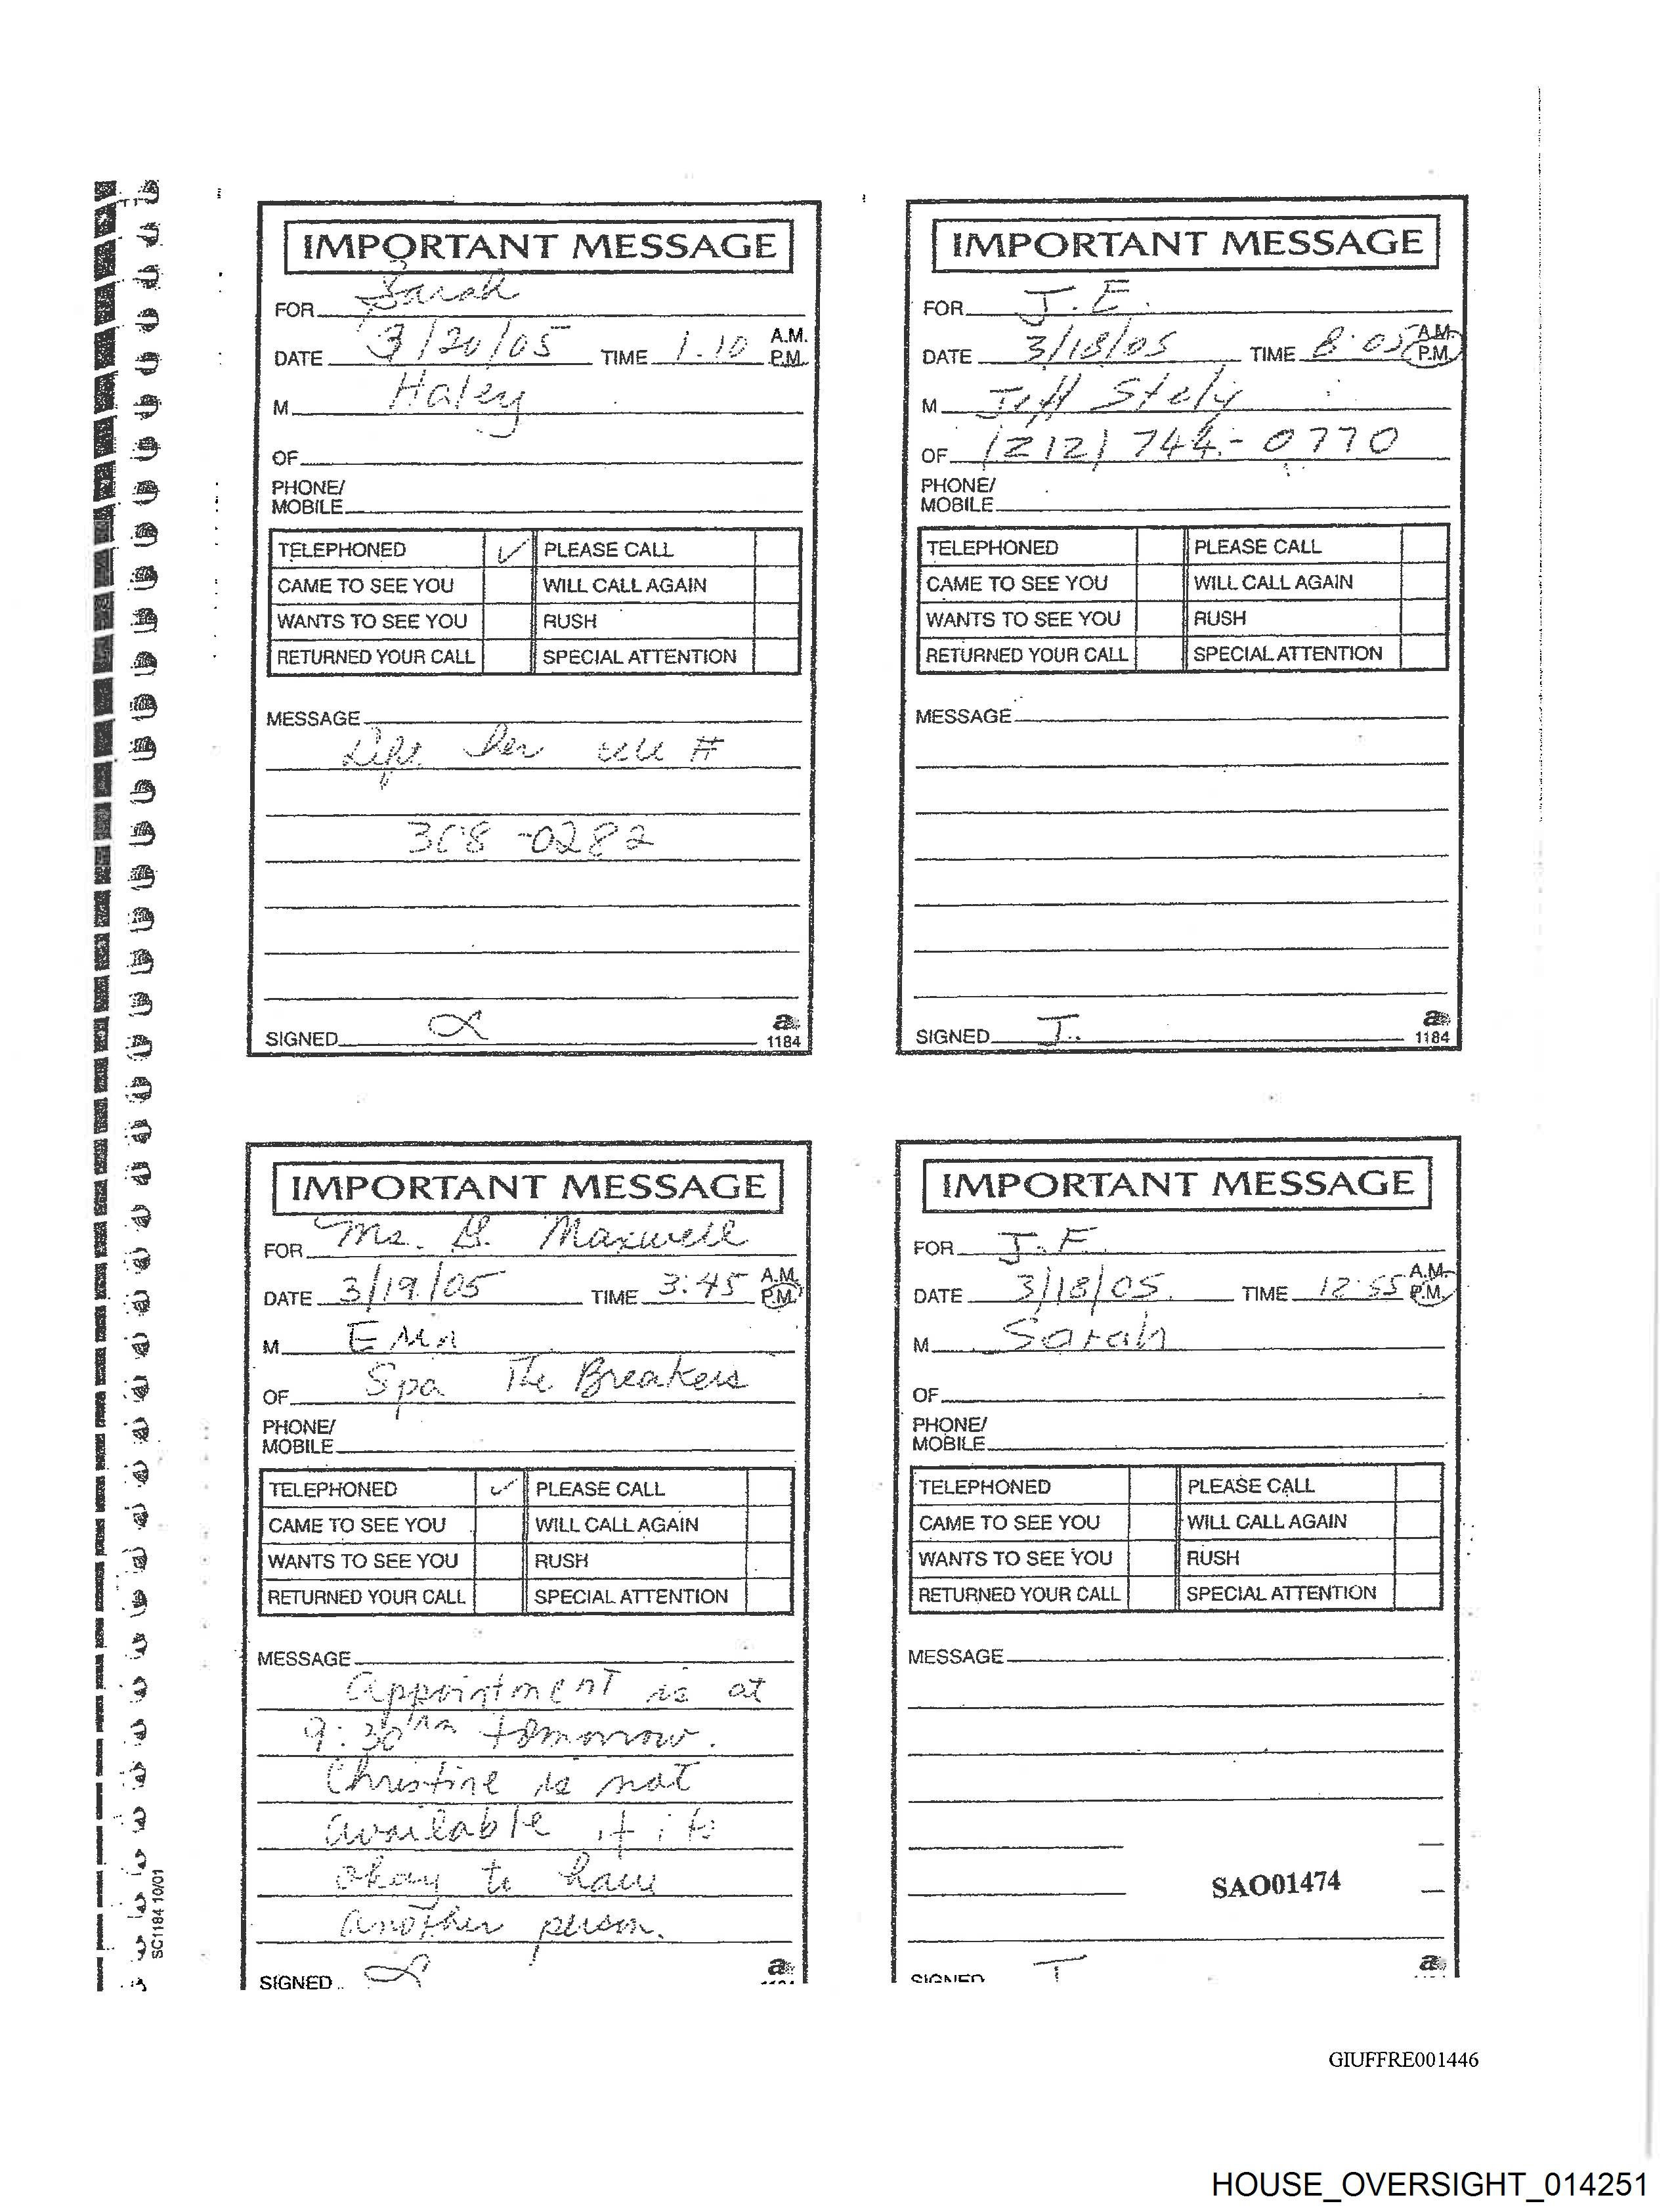 IMPORTANT MESSAGE
FOR Sarah
DATE 3/20/05 TIME 1.10 A.M. P.M.
M Haley
OF
PHONE/
MOBILE
TELEPHONED ✓ PLEASE CALL
CAME TO SEE YOU WILL CALL AGAIN
WANTS TO SEE YOU RUSH
RETURNED YOUR CALL SPECIAL ATTENTION
MESSAGE
Left her cell #
308-0282
SIGNED
a
1184
IMPORTANT MESSAGE
FOR J.E.
DATE 3/18/05 TIME 8:05 A.M. P.M.
M Jeff Stely
OF (212) 744-0770
PHONE/
MOBILE
TELEPHONED PLEASE CALL
CAME TO SEE YOU WILL CALL AGAIN
WANTS TO SEE YOU RUSH
RETURNED YOUR CALL SPECIAL ATTENTION
MESSAGE
SIGNED J.
a
1184
IMPORTANT MESSAGE
FOR Ms. G. Maxwell
DATE 3/19/05 TIME 3:45 A.M. P.M.
M Erin
OF Spa The Breakers
PHONE/
MOBILE
TELEPHONED ✓ PLEASE CALL
CAME TO SEE YOU WILL CALL AGAIN
WANTS TO SEE YOU RUSH
RETURNED YOUR CALL SPECIAL ATTENTION
MESSAGE
Appointment is at
9:30 tomorrow.
Christine is not
available if its
okay to have
another person.
SIGNED
a
IMPORTANT MESSAGE
FOR J.E.
DATE 3/18/05. TIME 12:55 A.M. P.M.
M Sarah
OF
PHONE/
MOBILE
TELEPHONED PLEASE CALL
CAME TO SEE YOU WILL CALL AGAIN
WANTS TO SEE YOU RUSH
RETURNED YOUR CALL SPECIAL ATTENTION
MESSAGE
SAO01474
SIGNED J
a
SC1184 10/01
GIUFFRE001446
HOUSE_OVERSIGHT_014251